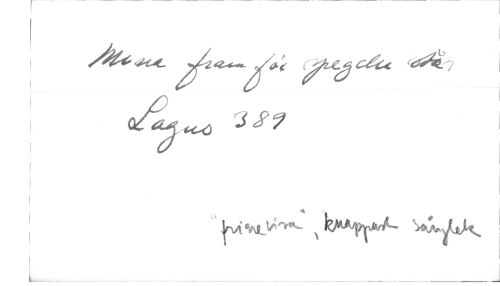 Mona fram för spegeln står
Lagus 389
"friarevisa", knappast sånglek